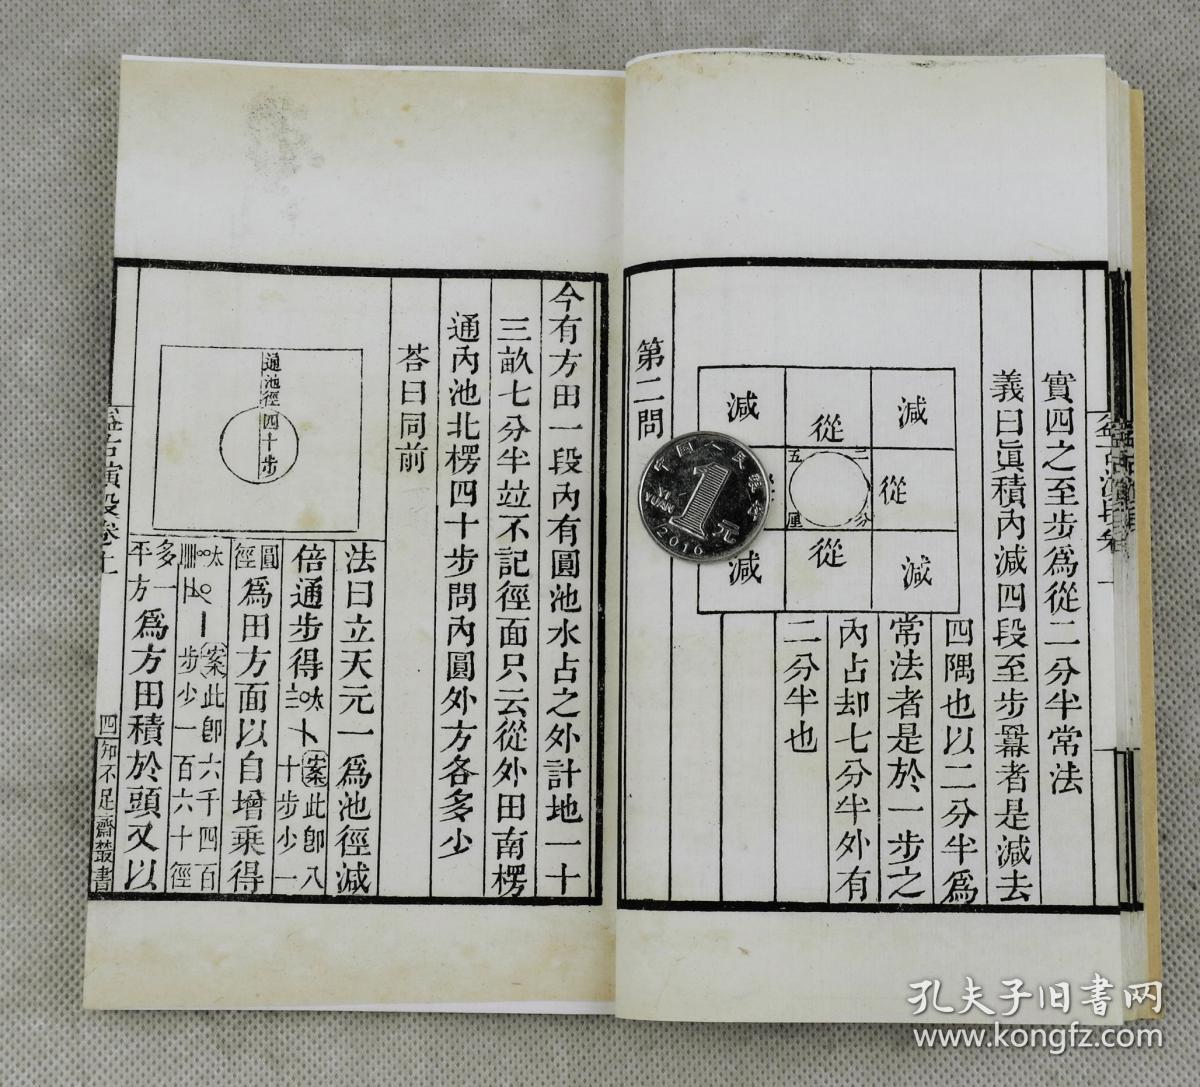 實四之至步爲從二分半常法
義曰眞積內減四段至步羃者是減去
四隅也以二分半爲
常法者是於一步之
內占却七分半外有
二分半也
減
從
減
從
減
從
減
二
五
分
厘
第二問
今有方田一段內有圓池水占之外計地一十
三畝七分半竝不記徑面只云從外田南楞
通內池北楞四十步問內圓外方各多少
荅曰同前
通池徑四十步
法曰立天元一爲池徑減
倍通步得
太
案此卽八
十步少一
圓徑
爲田方面以自增乘得
太
案此卽六千四百
步少一百六十徑
多一平方
爲方田積於頭又以
益古演段卷上
四
知不足齋叢書
中国人民银行
1元
YI YUAN
2016
孔夫子旧書网
www.kongfz.com